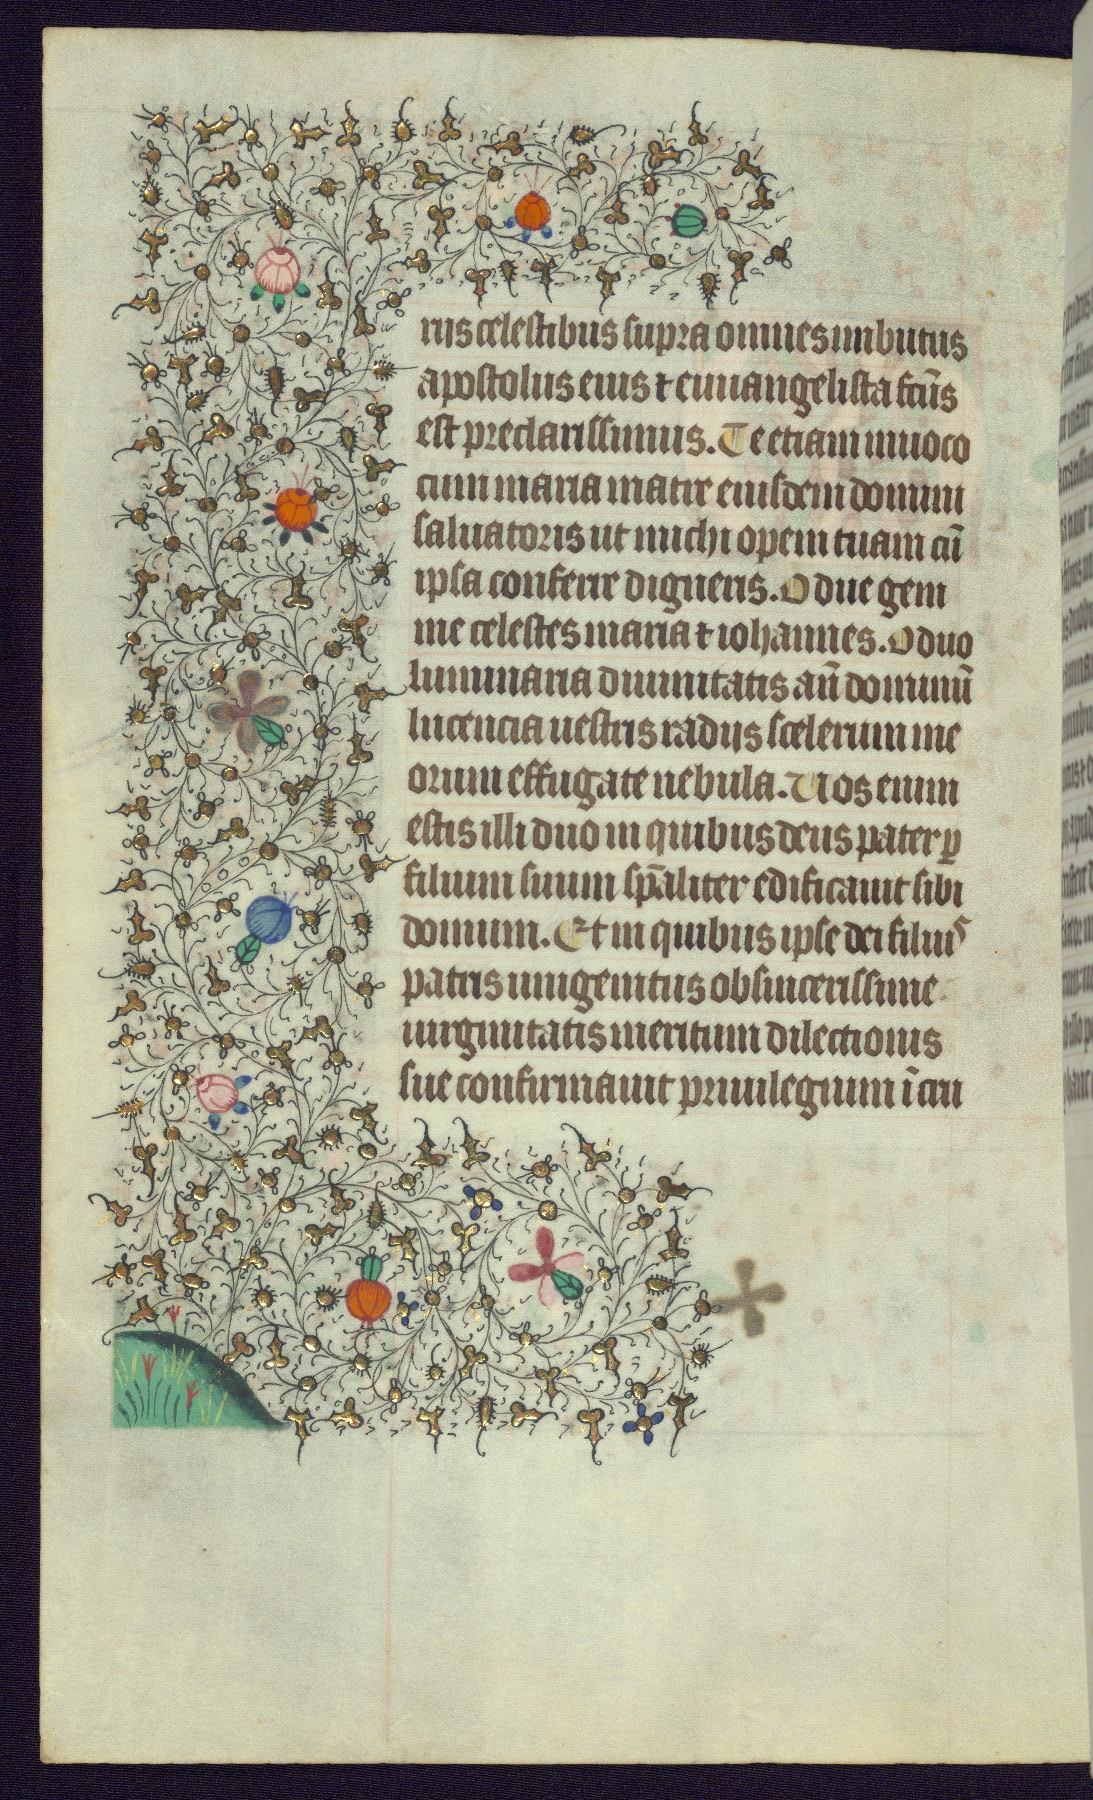 riis celestibus supra omnes imbutus
apostolus eius ⁊ euuangelista fc̄us
est preclarissimus. Te etiam inuoco
cum maria matre eiusdem domini
saluatoris ut michi opem tuam cū
ipsa conferre digneris. O due gem
me celestes maria ⁊ iohannes. O duo
luminaria diuinitatis an̄ dominū
lucencia uestris radijs scelerum me
orum effugate nebula. Uos enim
estis illi duo in quibus deus pater ꝑ
filium suum sp̄aliter edificauit sibi
domum. Et in quibus ipse dei filius
patris unigenitus ob sincerissime
uirginitatis meritum dilectionis
sue confirmauit priuilegium ī cru